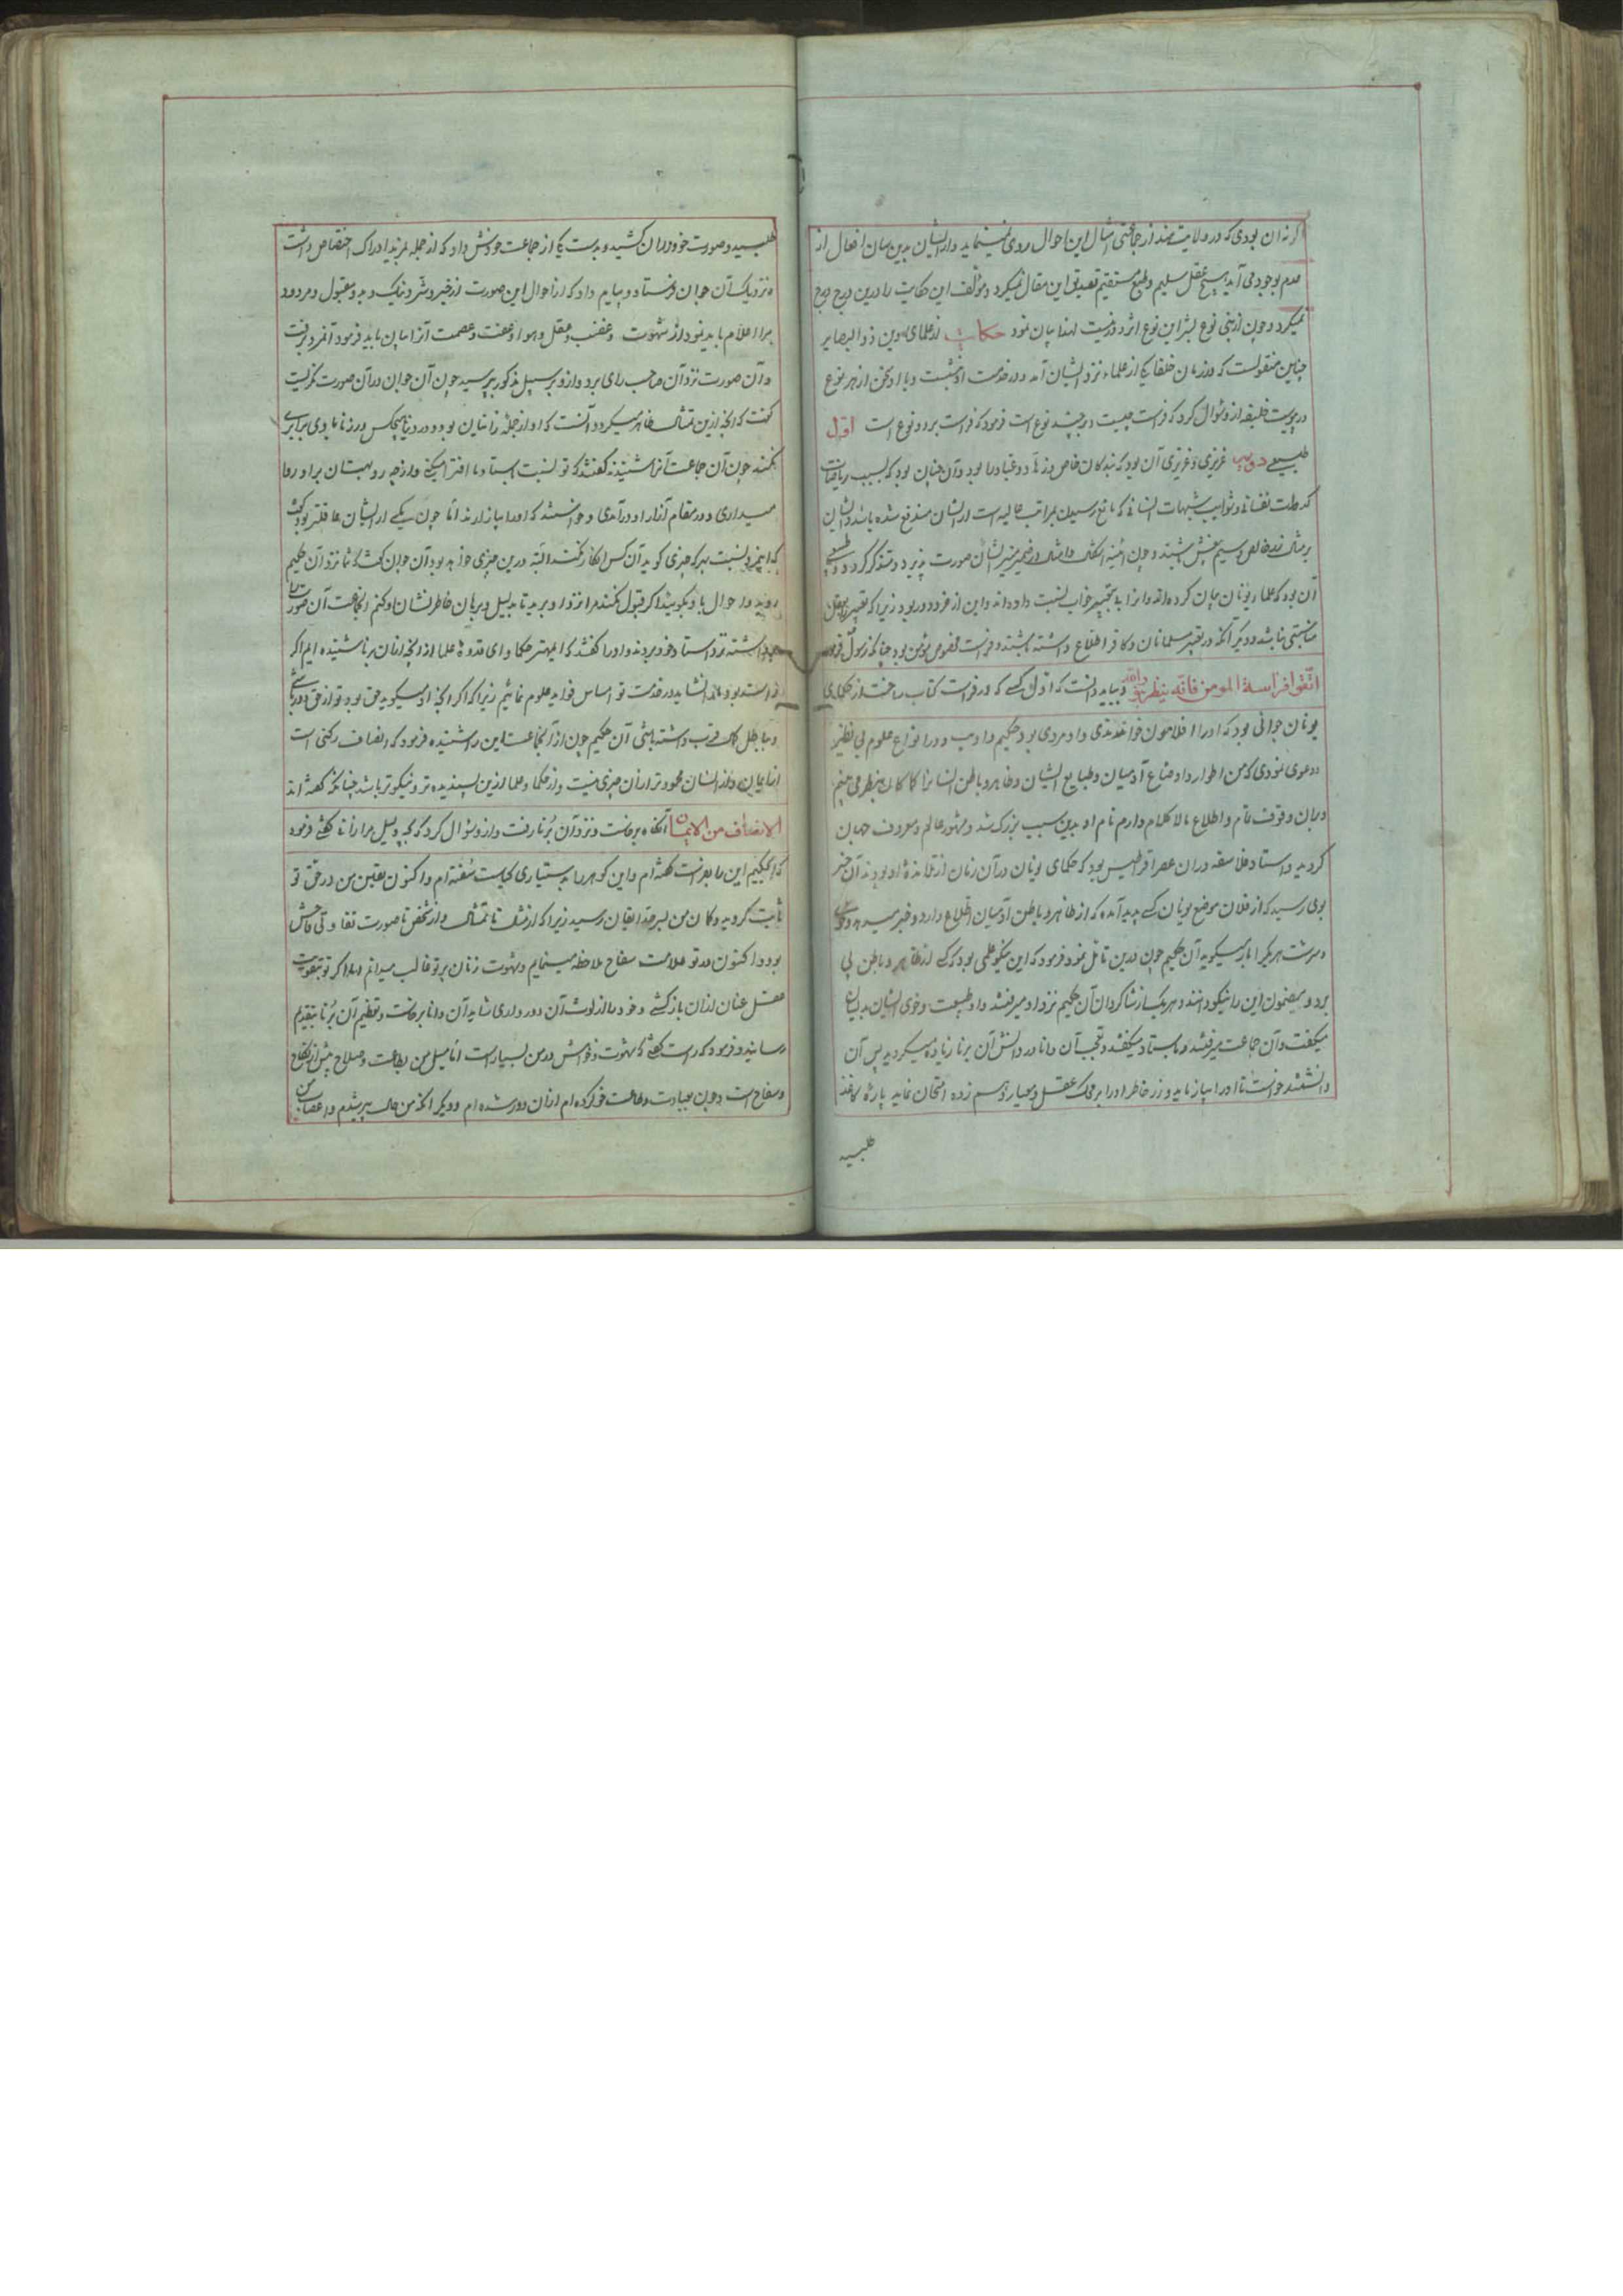 اگر نه ان بودی که در ولایت هند از جماعتی امثال این احوال روی مینماید و از ایشان بدین سان افعال از
عدم بوجود می آید هیچ عقل سلیم و طبع مستقیم تصدیق این مقال نمیکرد و مؤلف این حکایت را درین درج درج
نمیکرد و چون از بنی نوع بشر این نوع اثر دور نیست لهذا بیان نمود حکایت از علمای دین ذو البصایر
چنین منقولست که در زمان خلفا یکی از علماء نزد ایشان آمد و در خدمت او نشست و با او سخن از هر نوع
در پیوست خلیفه از و سؤال کرد که فراست چیست و بر چند نوع است فرمود که فراست بر دو نوع است اول
طبیعی دویم غریزی و غریزی آن بود که بندگان خاص و زهاد و عباد را بود و آن چنان بود که بسبب ریاضات
کدورات نفسانی و شوایب شبهات انسانی که مانع رسیدن بمراتب عالیه است از ایشان مندفع شده باشد و ایشان
بر مثال زر خالص و سیم بیغش باشند و چون آئینه اشکال و امثال در ضمیر منیر ایشان صورت پذیرد و متذکر گردد و طبیعی
آن بود که علماء یونان بیان کرده اند و انرا به تعبیر خواب نسبت داده اند و این از خرد دور بود زیرا که تعبیر را بعقل
مناسبتی نباشد و دیگر آنکه در تعبیر مسلمانان و کافر اطلاع داشته باشند و فراست مخصوص مؤمن بود چنانکه رسول فرمود
اتقوا فراسة المومن فانه ینظر بنور الله و بباید دانست که اول کسی که در فراست کتاب ساخت از حکمای
یونان جوانی بود که او را افلامون خواندندی و او مردی بود حکیم و ادیب و در انواع علوم بی نظیر
و دعوی نمودی که من اطوار و اوضاع آدمیان و طبایع ایشان و ظاهر و باطن انسانرا کما کان بنظر می بینم
و بران وقوف تمام و اطلاع مالا کلام دارم نام او بدین سبب بزرگ شد و مشهور عالم و معروف جهان
گردید و استاد فلاسفه دران عصر اقراطیس بود که حکمای یونان در آن زمان از تلامذهٔ او بودند آن خبر
بوی رسید که از فلان موضع یونان کسی پدید آمده که از ظاهر و باطن آدمیان اطلاع دارد و خبر میدهد و خوی
و سرشت هر یکرا باز میگوید آن حکیم چون درین تأمل نمود فرمود که این نیکو علمی بود که کسی از ظاهر به باطن پی
برد و مضمون این را نیکو دانند و هر یک از شاگردان آن حکیم نزد او میرفتند و او طبیعت و خوی ایشان بدیشان
میگفت و آن جماعت میرفتند و با استاد میگفتند و تعجب آن دانا در دانش آن برنا زیاده میگردید پس آن
دانشمند خواست تا او را بیازماید و زر خاطر او را بر محک عقل و معیار وهم زده امتحان نماید پارهٔ کاغذ
طلبید
طلبید و صورت خود دران کشید و بدست یکی از جماعت خودش داد که از جمله بمزید ادراک اختصاص داشت
و نزدیک آن جوان فرستاد و پیام داد که از احوال این صورت از خیر و شر و نیک و بد و مقبول و مردود
مرا اعلام باید نمود و از شهوت و غضب و عقل و هوا و عفت و عصمت آنرا بیان باید فرمود آنمرد برفت
و آن صورت نزد آن صاحب رای برد و از و بر سبیل مذکور بپرسید چون آن جوان در آن صورت نگریست
گفت که آنچه ازین تمثال ظاهر میگردد آنست که او از جمله زانیان بود و در دنیا هیچکس در زنا با وی برابری
نکند چون آن جماعت آنرا شنیدند گفتند که تو نسبت باستاد ما افترا میکنی و از چه رو بهتان بر او روا
میداری و در مقام آزار او درآمدی و خواستند که او را بیازارند اما چون یکی از ایشان عاقلتر بود گفت
که اینمرد نسبت بهر که چیزی گوید آن کس انکار نکند البته درین چیزی خواهد بود آن جوان گفت که شما نزد آن حکیم
روید و احوال با او بگوئید اگر قبول نکند مرا نزد او برید تا بدلیل و برهان خاطر نشان او کنم آنجماعت آن صورت را
برداشته نزد استاد خود بردند و او را گفتند که ای مهتر حکما و ای قدوهٔ علما از و آنچه از زبان برنا شنیده ایم اگر
راست بود و نشاید در خدمت تو اساس فواید علوم نمائیم زیرا که اگر آنچه او میگوید حق بود تو از حق دور باشی
و بباطل کمال قرب داشته باشی آن حکیم چون از آنجماعت این را شنیده فرمود که انصاف رکنی است
از ایمان و از انسان محمودتر ازان چیزی نیست و از حکما و علما ازین پسندیده تر و نیکوتر باشد چنانکه گفته اند
الانصاف من الایمان آنگاه برخاست و نزد آن برنا رفت و ازو سؤال کرد که بچه دلیل مرا زانی گفتی فرمود
که ای حکیم این را بفراست گفته ام و این گوهر را به دستیاری کیاست سفته ام و اکنون یقین من در حق تو
ثابت گردید و گمان من بسرحد ایقان رسید زیرا که از مثال تا تمثال و از شخص تا صورت تفاوتی فاحش
بود و اکنون در تو علامت سفاح ملاحظه مینمایم و شهوت زنان بر تو غالب میدانم اما اگر تو بتقویت
عقل عنان ازان بازکشی و خود را از لوث آن دور داری شاید آن دانا برخاست و تعظیم آن برنا بتقدیم
رسانید و فرمود که راست گفتی که شهوت و خواهش در من بسیار است اما میل من بطاعت و صلاح بیش از نکاح
و سفاح است و چون بعبادت و طاعت خو کرده ام ازان دور شده ام و دیگر آنکه من حال پیر شدم و اعضای من